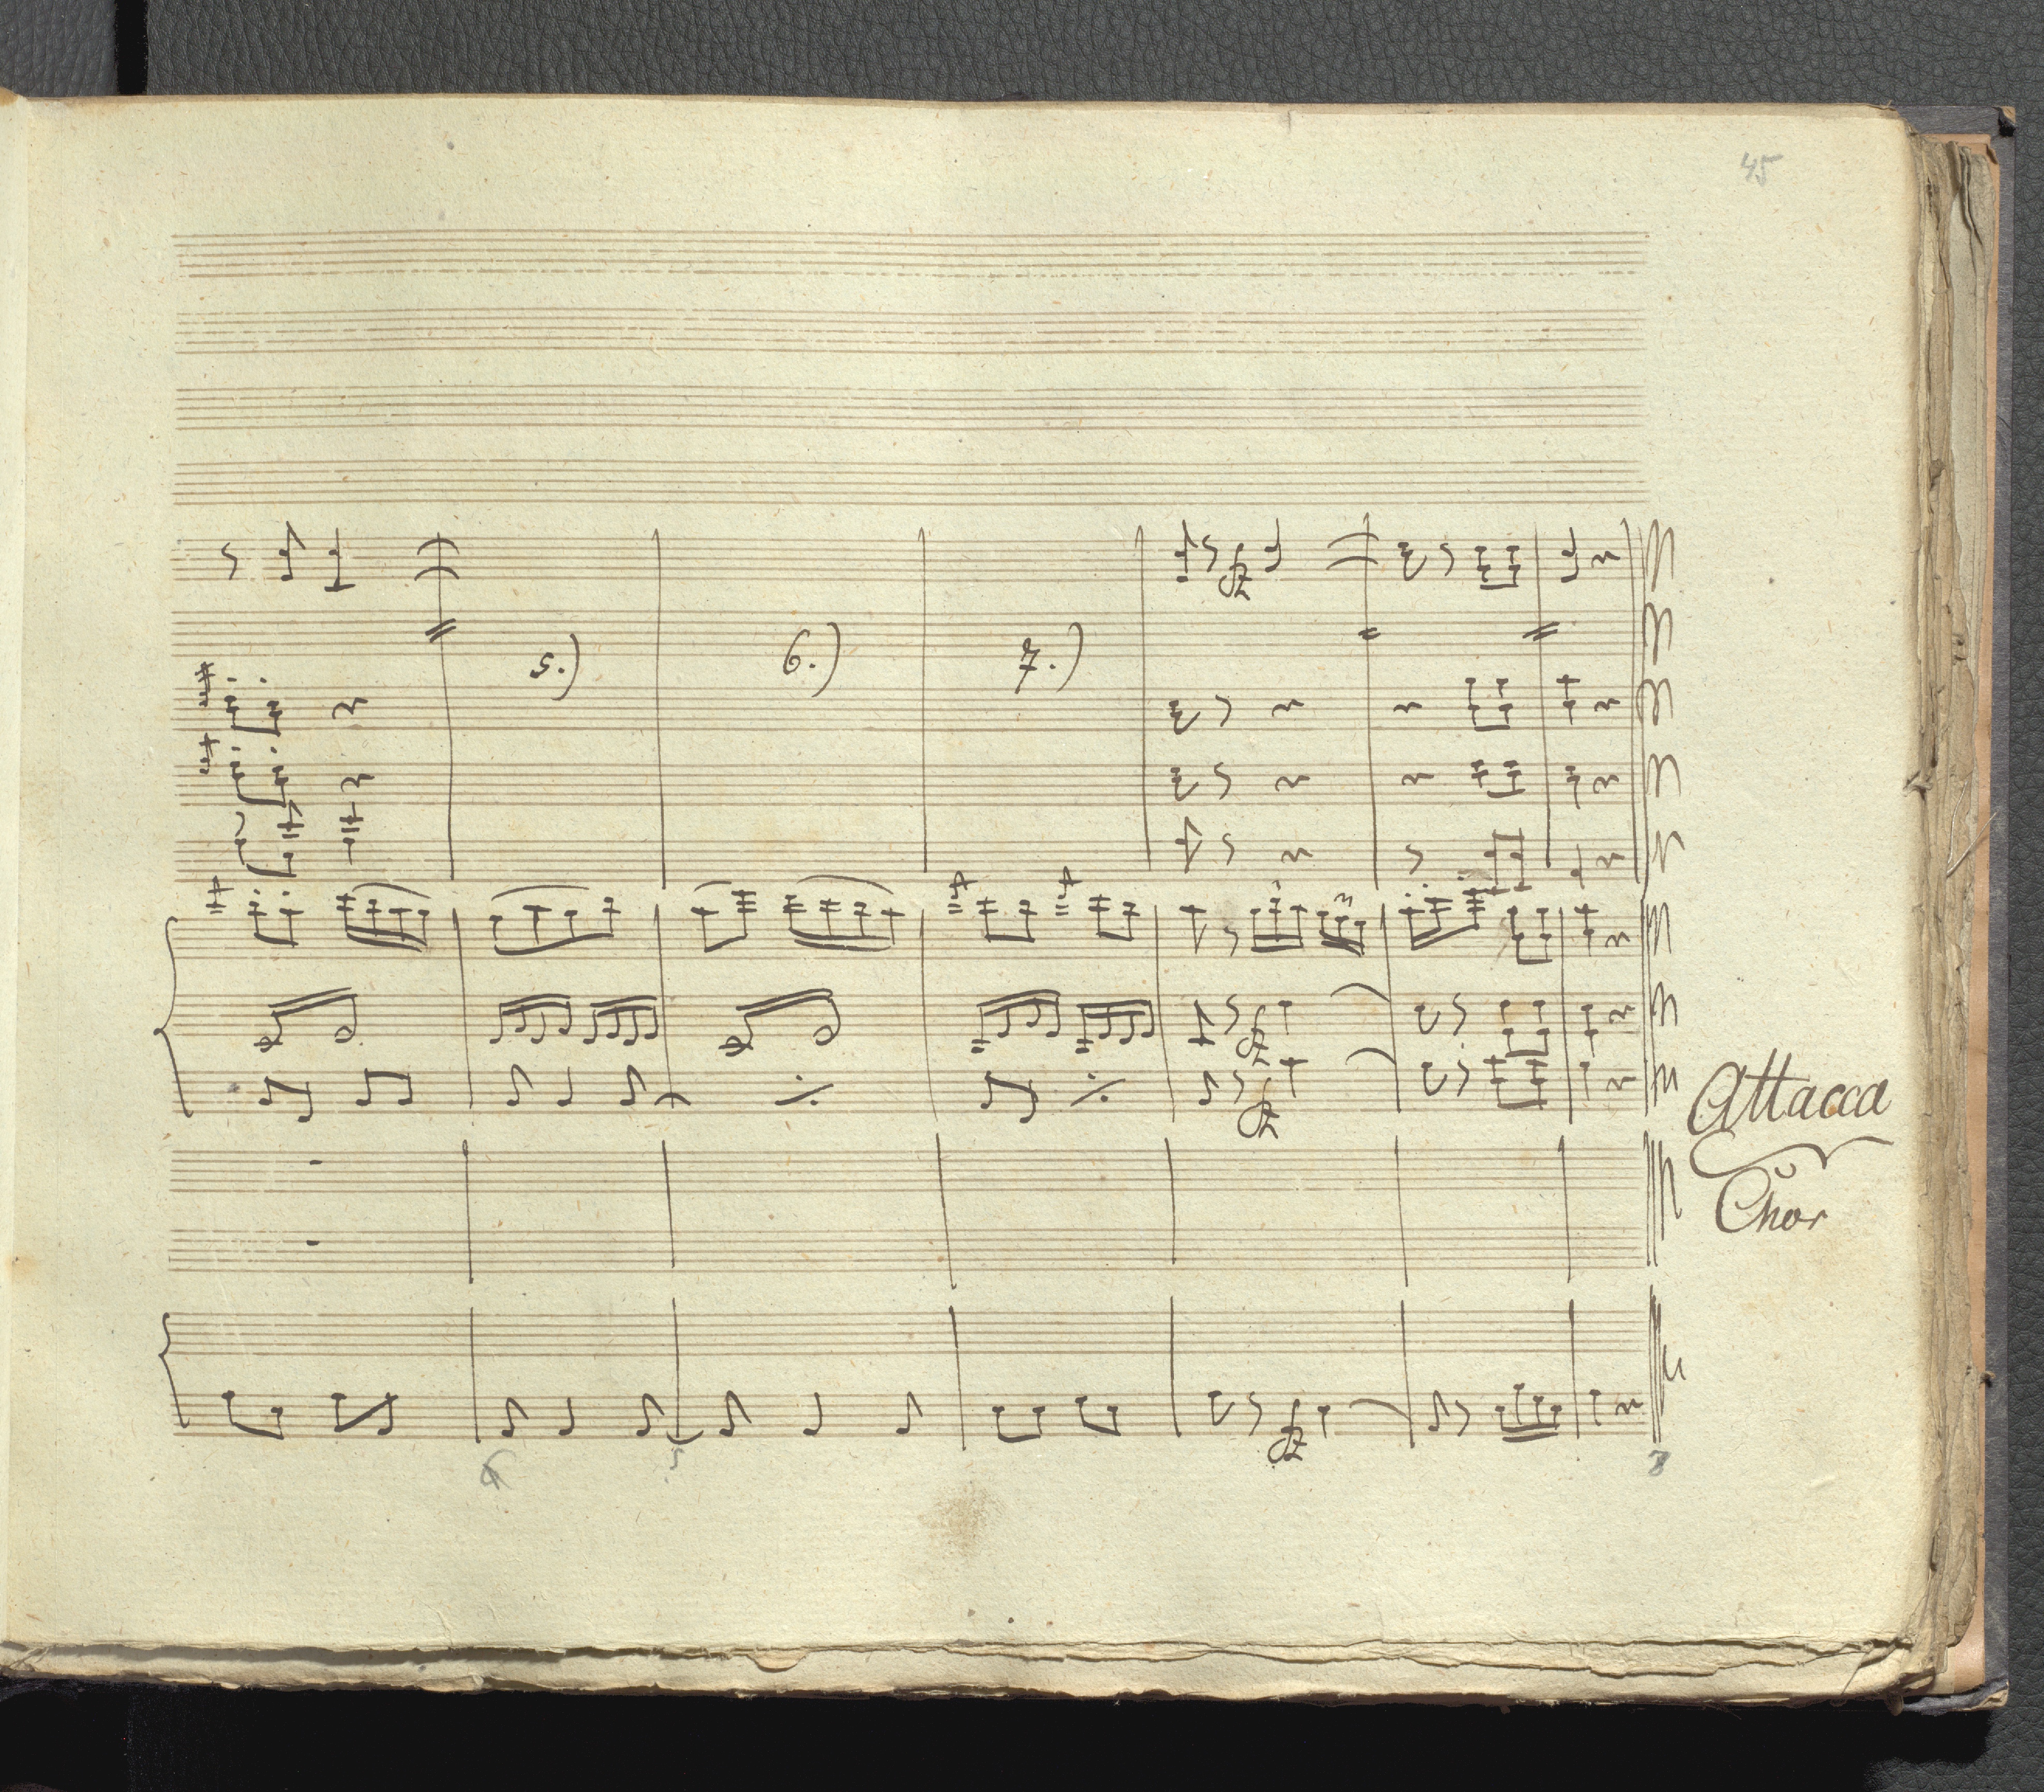 45
5.) 6.) 7.)
Attacca
Chor
5 8